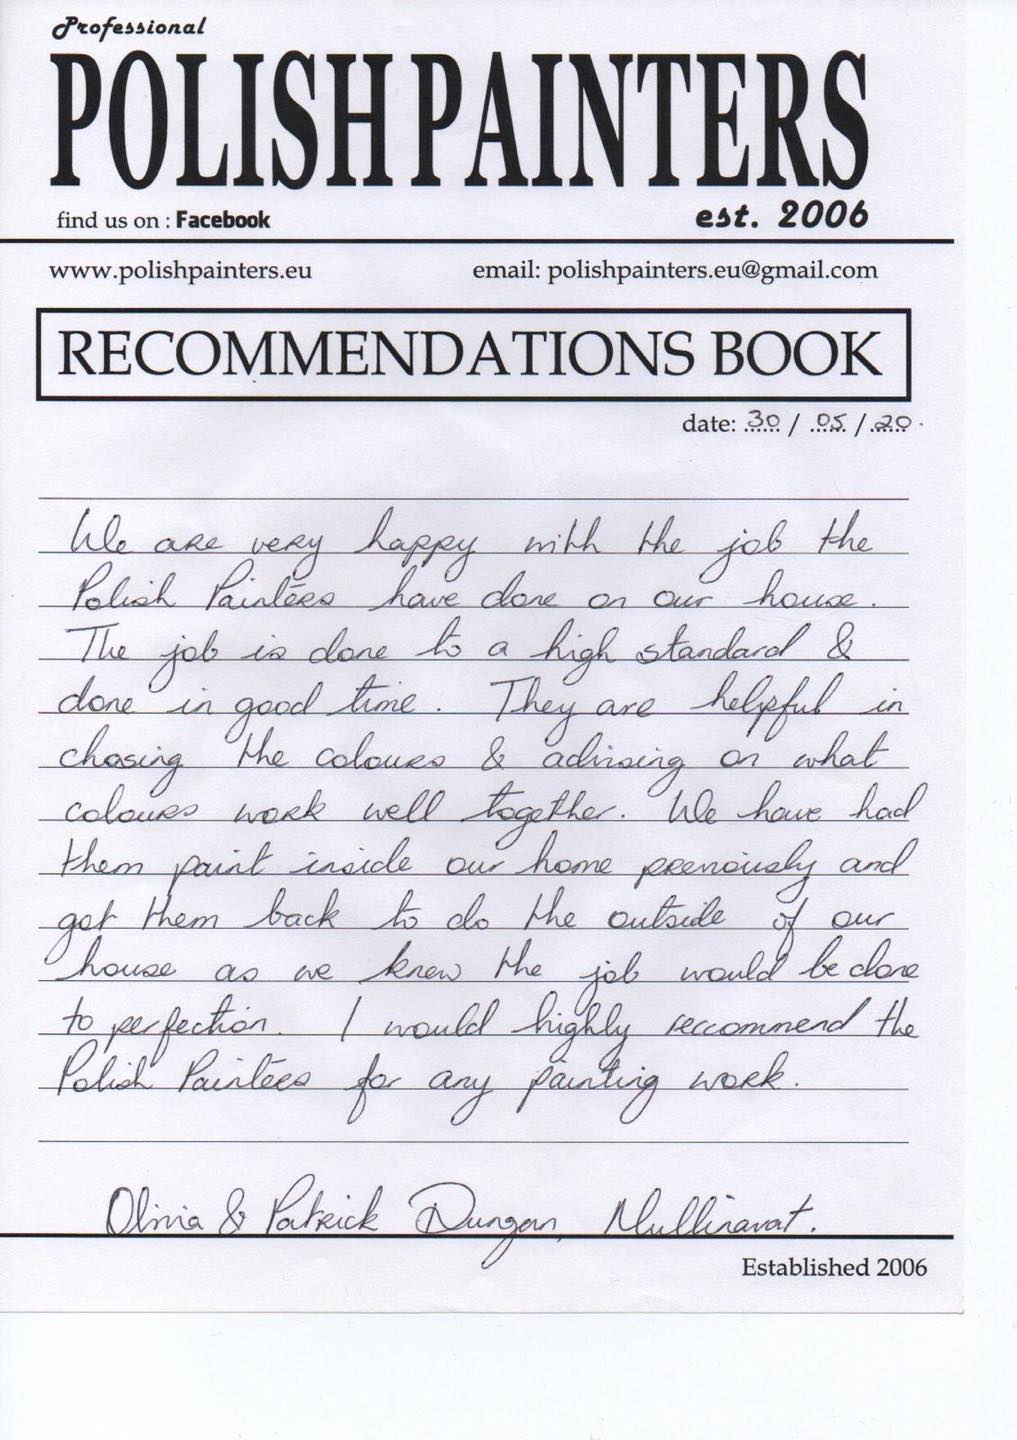 Professional
POLISH PAINTERS
find us on : Facebook
est. 2006
www.polishpainters.eu
email: polishpainters.eu@gmail.com
RECOMMENDATIONS BOOK
date: 30 / 05 / 20.
We are very happy with the job the
Polish Painters have done on our house.
The job is done to a high standard &
done in good time. They are helpful in
chosing the colours & advising on what
colours work well together. We have had
them paint inside our home previously and
got them back to do the outside of our
house as we knew the job would be done
to perfection. I would highly reccommend the
Polish Painters for any painting work.
Olivia & Patrick Dungan, Mullinavat.
Established 2006